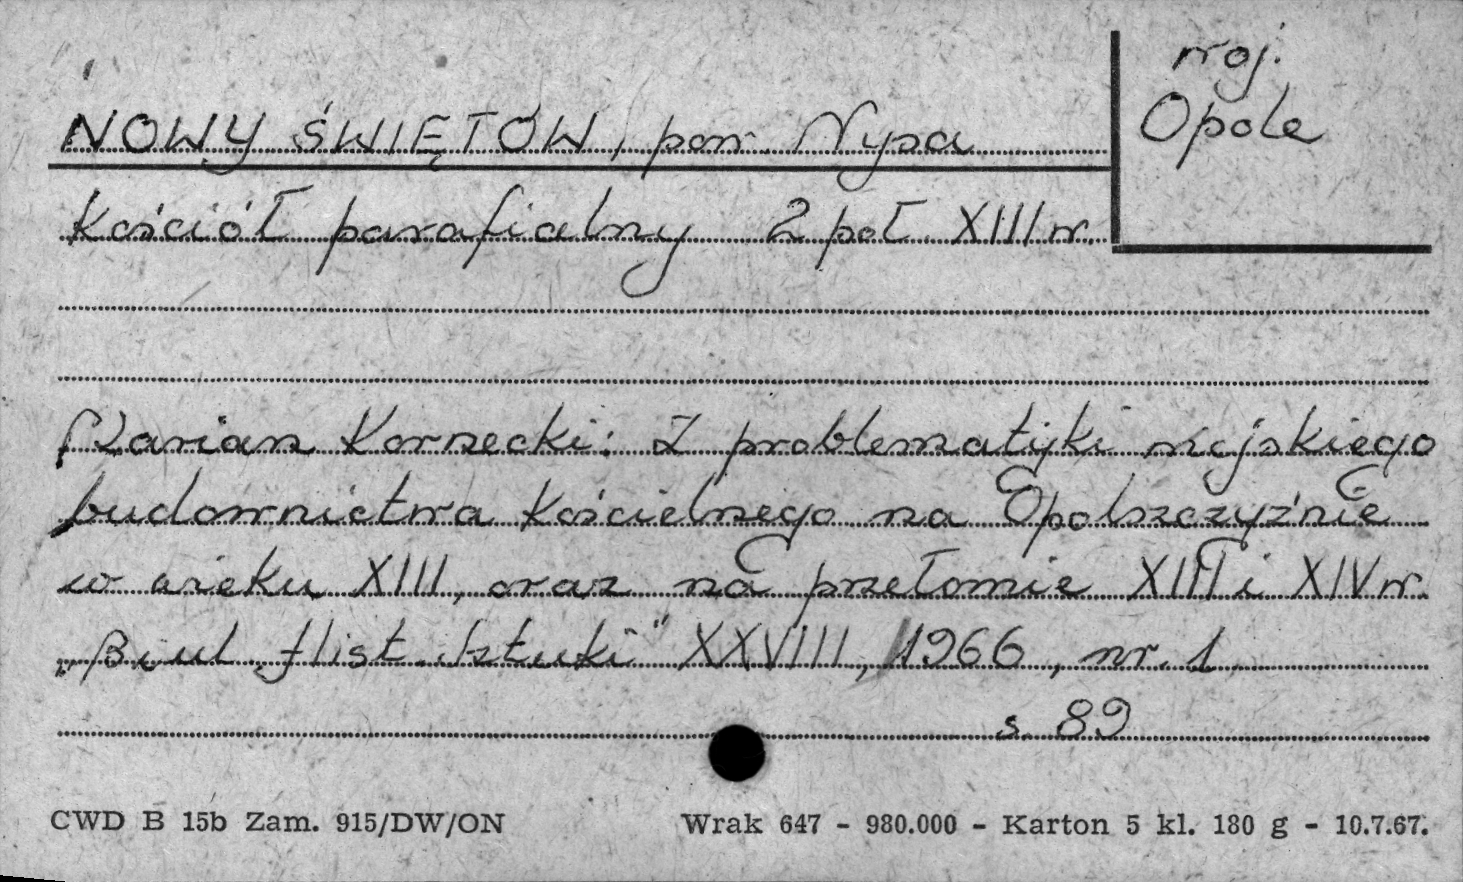 woj.
Opole
NOWY ŚWIĘTÓW, pow. Nysa
Kościół parafialny 2 poł. XIII w.
Marian Kornecki: Z problematyki wiejskiego
budownictwa kościelnego na Opolszczyźnie
w wieku XIII, oraz na przełomie XIII i XIV w.
„Biul. Hist. Sztuki" XXVIII, 1966, nr. 1
s. 89
CWD B 15b Zam. 915/DW/ON Wrak 647 - 980.000 - Karton 5 kl. 180 g - 10.7.67.